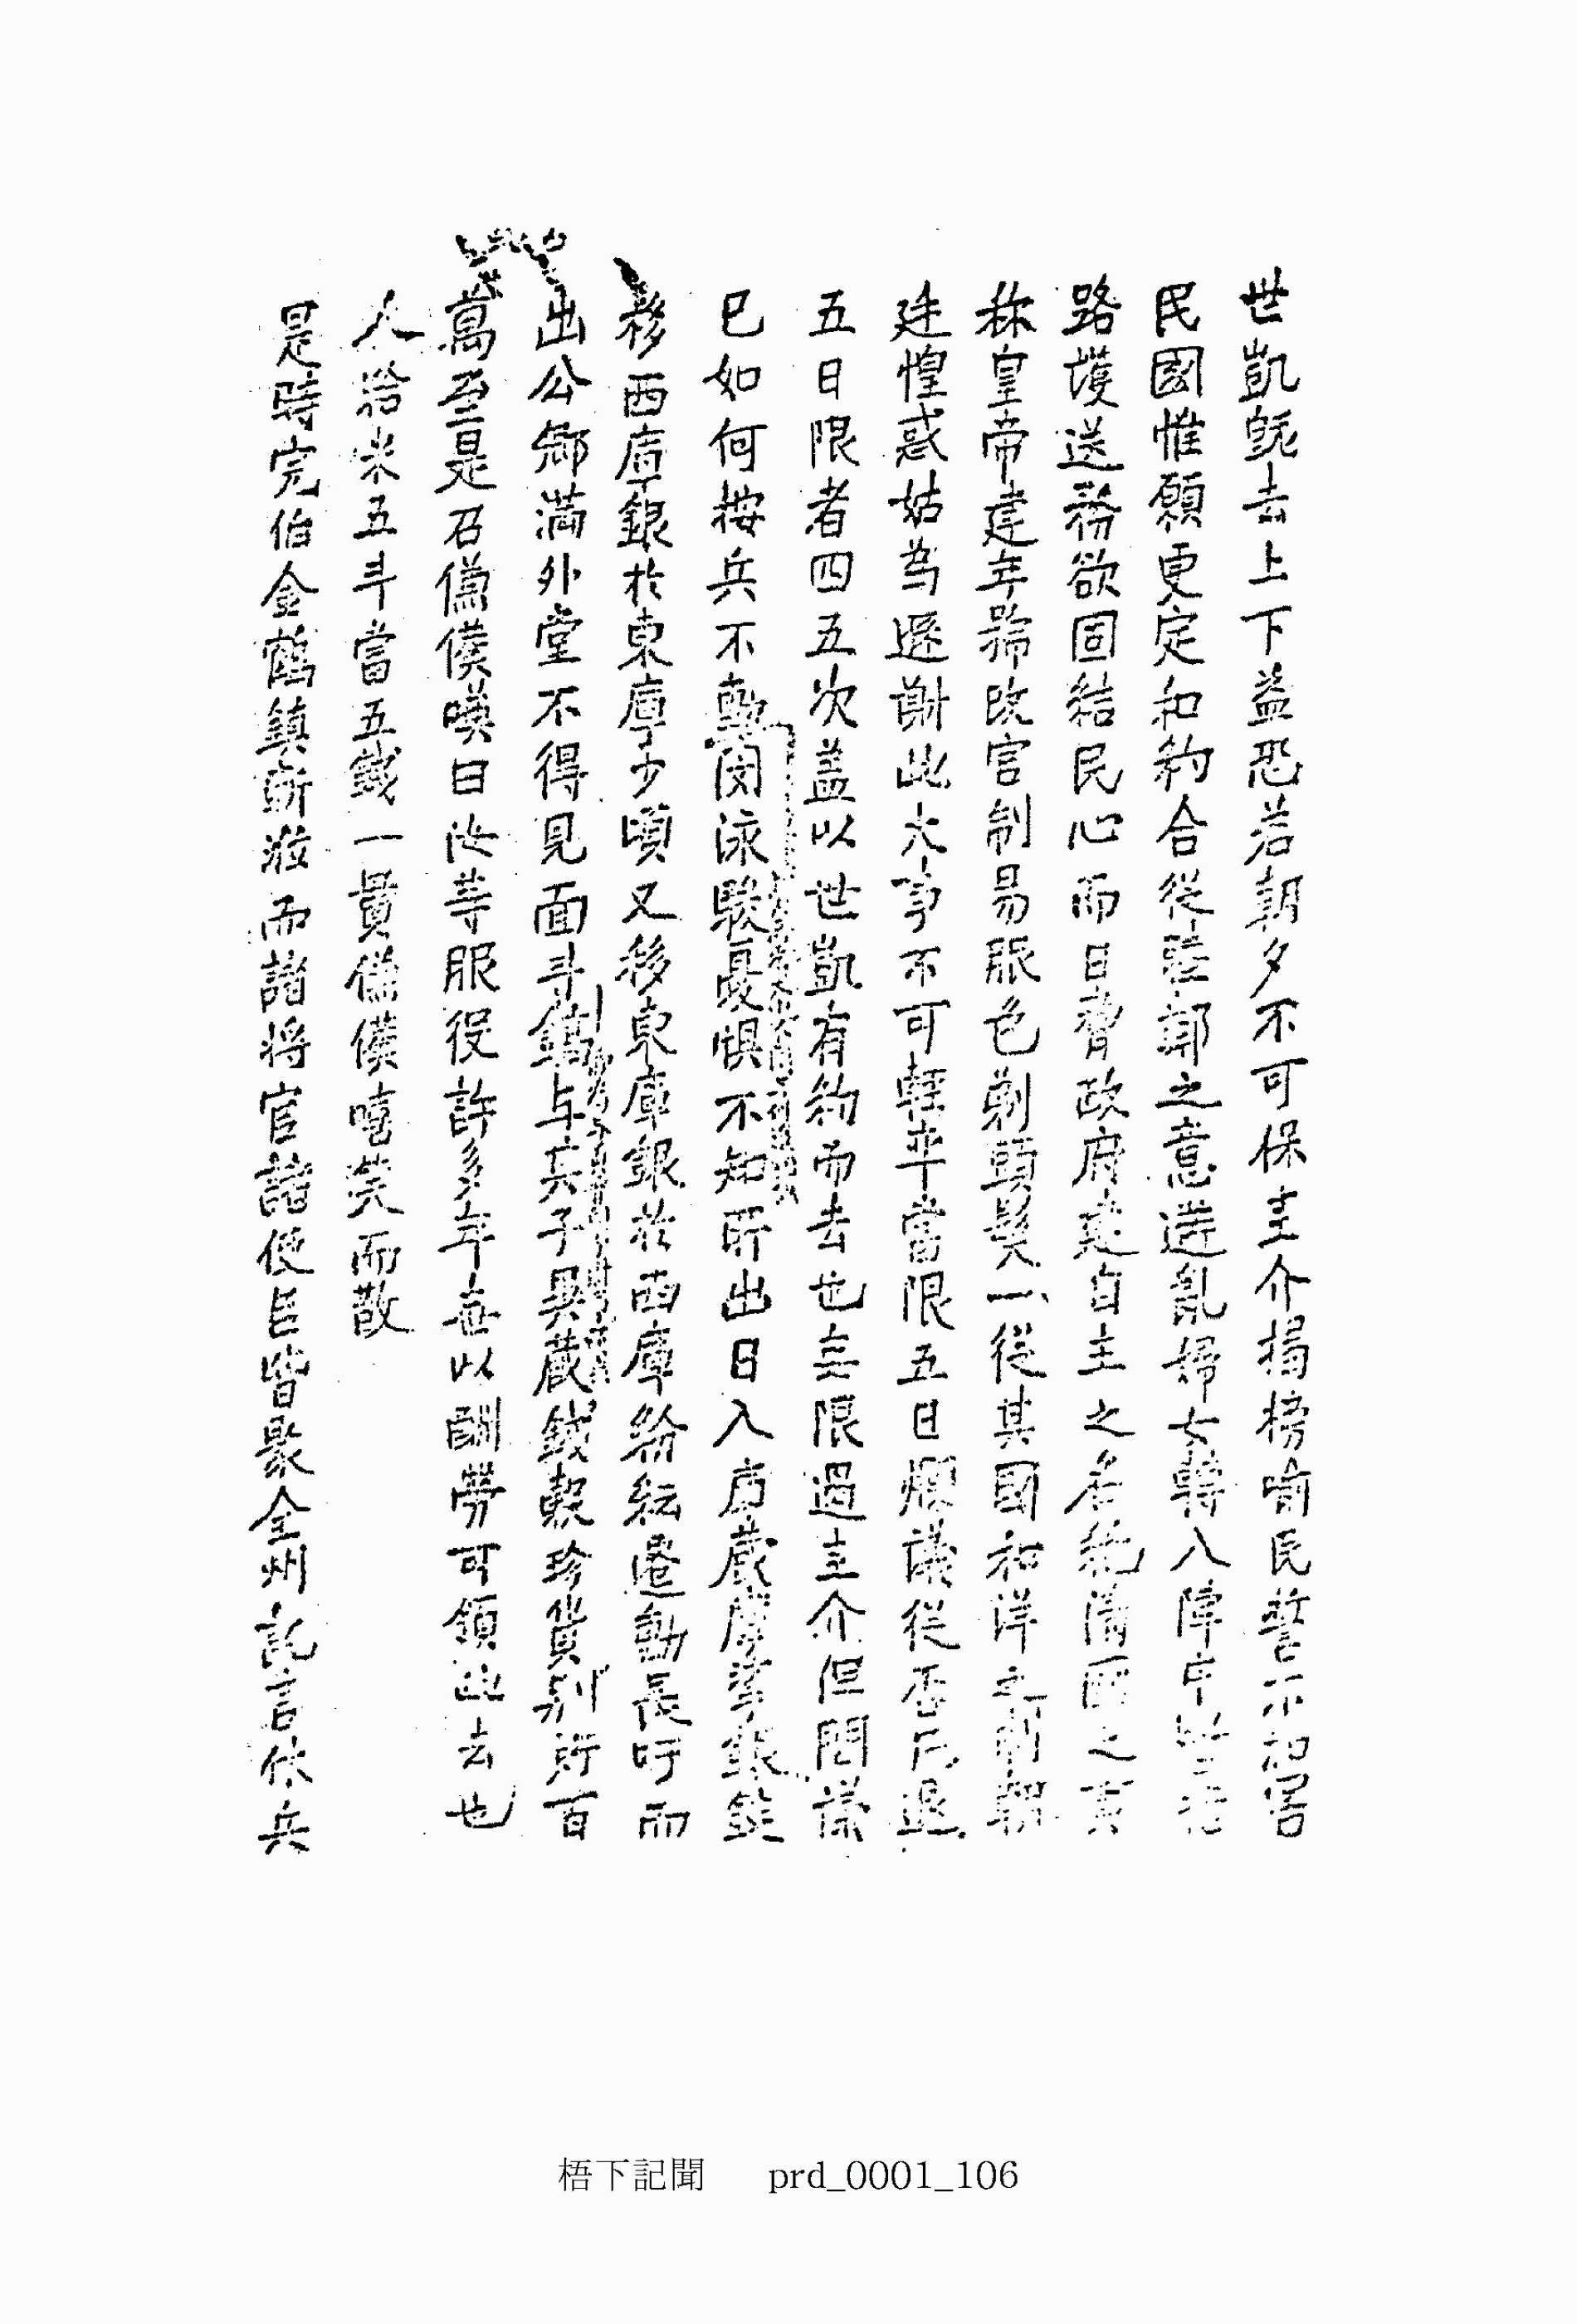 世凱旣去上下益恐若朝夕不可保圭介揭榜喩民誓不相害
民國惟願更定和約合從陸鄰之意避亂婦女轉入陣中
路護送務欲固結民心而日脅政府建自主之名絶淸國之貢
稱皇帝建年號改官制易服色剃頭髮一從其國和洋之制朝
廷惶惑姑爲遜謝此大事不可輕率當限五日爛議從否乃退
五日限者四五次盖以世凱有約而去也每限過圭介但問議
已如何按兵不動閔泳駿憂惧不知所出日入庫藏摩挲銀錠
移西庫銀於東庫少頃又移東庫銀於西庫紛紜遷動長吁而
出公卿滿外堂不得見面斗鎬与其子異藏錢穀珍貨別貯百
萬至是召傔僕嘆曰汝等服役許多年無以酬勞可領此去也
人給米五斗當五錢一貫傔僕嘻笑而散
是時完伯金鶴鎭新莅而諸將官諸使臣皆聚全州託言休兵
梧下記聞 prd_0001_106